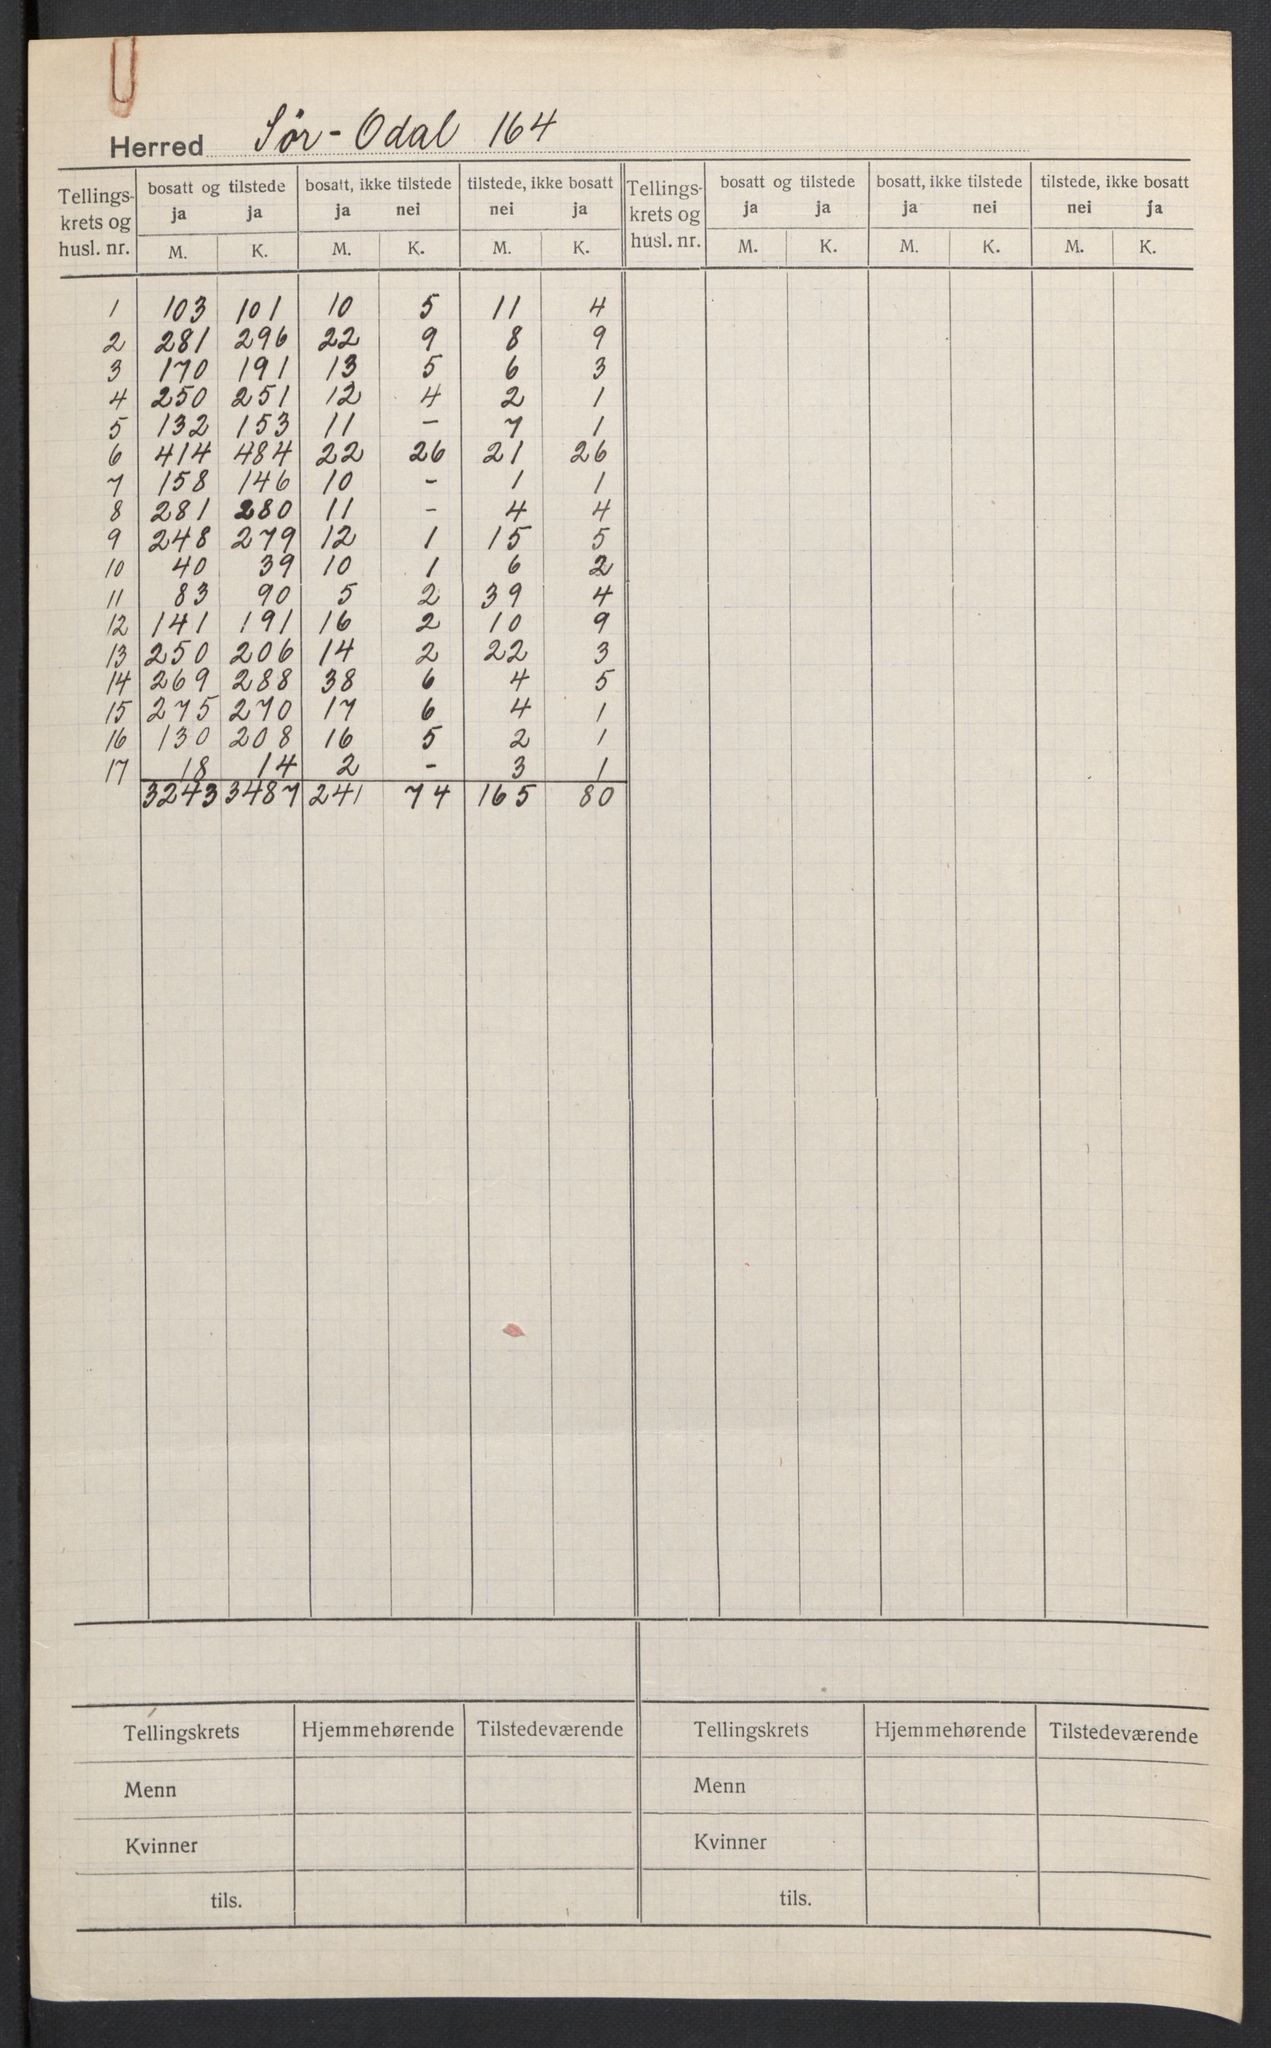 Herred Sør-Odal 164
Tellings-krets og husl. nr. bosatt og tilstede bosatt, ikke tilstede tilstede, ikke bosatt Tellings-krets og husl. nr. bosatt og tilstede bosatt, ikke tilstede tilstede, ikke bosatt
ja ja ja nei nei ja ja ja ja nei nei ja
M. K. M. K. M. K. M. K. M. K. M. K.
1 103 101 10 5 11 4
2 281 296 22 9 8 9
3 170 191 13 5 6 3
4 250 251 12 4 2 1
5 132 153 11 - 7 1
6 414 484 22 26 21 26
7 158 146 10 - 1 1
8 281 280 11 - 4 4
9 248 279 12 1 15 5
10 40 39 10 1 6 2
11 83 90 5 2 39 4
12 141 191 16 2 10 9
13 250 206 14 2 22 3
14 269 288 38 6 4 5
15 275 270 17 6 4 1
16 130 208 16 5 2 1
17 18 14 2 - 3 1
3243 3487 241 74 165 80
Tellingskrets Hjemmehørende Tilstedeværende Tellingskrets Hjemmehørende Tilstedeværende
Menn Menn
Kvinner Kvinner
tils. tils.